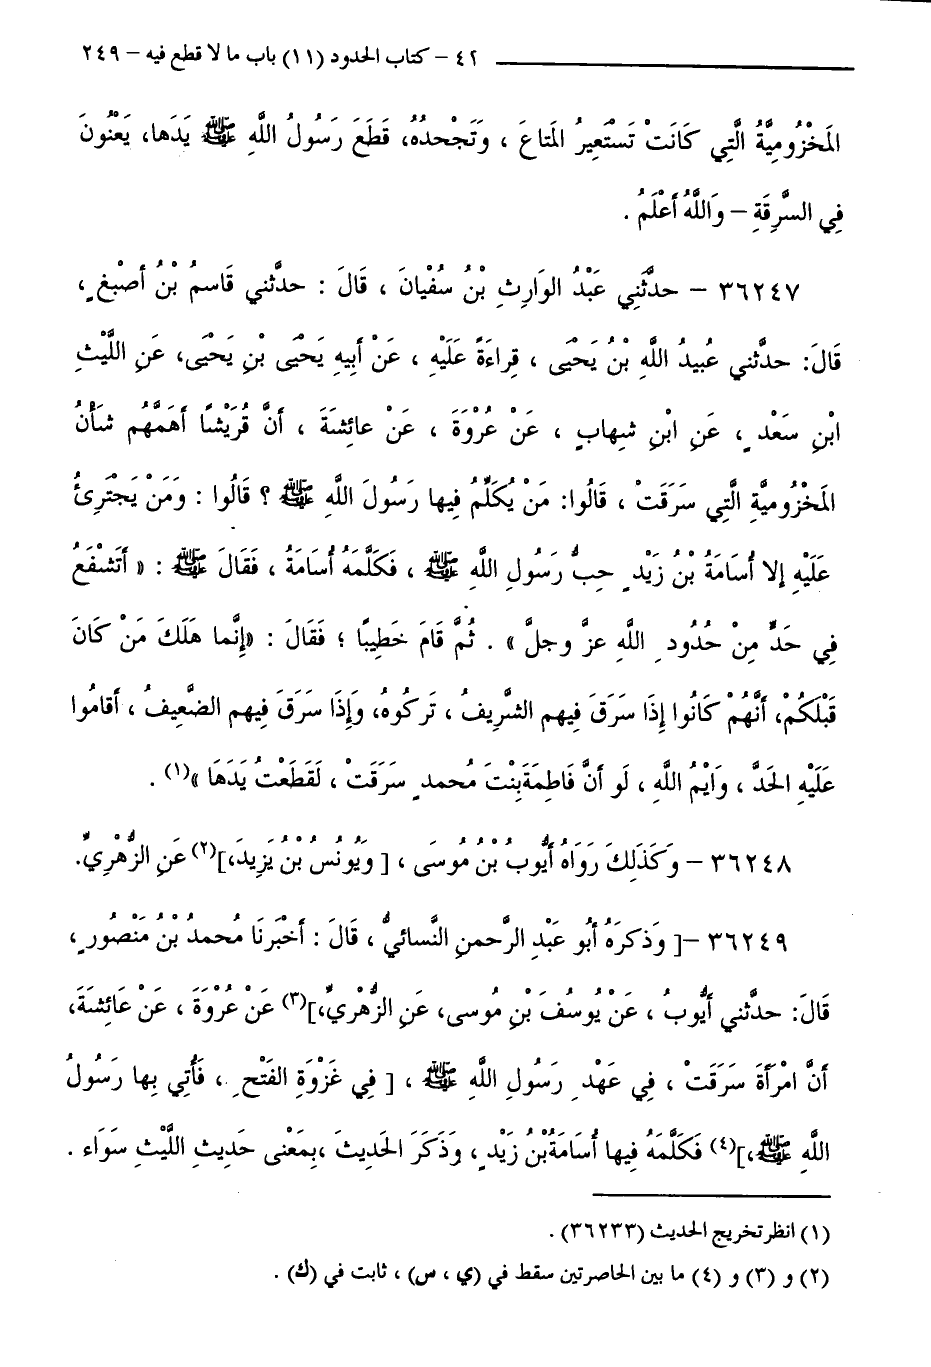 ٤٢ – كتاب الحدود (١١) باب ما لا قطع فيه – ٢٤٩
المَخْزُومِيَّةُ الَّتِي كَانَتْ تَسْتَعِيرُ المَتاعَ ، وَتَجْحدُهُ، قَطَعَ رَسُولُ اللَّهِ ﷺ يَدَها، يَعْنُونَ
فِي السَّرِقَةِ – وَاللَّهُ أَعْلَمُ .
٣٦٢٤٧ – حدَّثَنِي عَبْدُ الوَارِثِ بْنُ سُفْيانَ ، قَالَ : حدَّثني قَاسمُ بْنُ أَصْبغٍ ،
قَالَ: حدَّثني عبيدُ اللَّهِ بْنُ يَحْيَى ، قِراءَةً عَلَيْهِ ، عَنْ أَبِيهِ يَحْيَى بْنِ يَحْيَى، عَنِ اللَّيْثِ
ابْنِ سَعْدٍ ، عَنِ ابْنِ شِهابٍ ، عَنْ عُرْوَةَ ، عَنْ عائِشَةَ ، أَنَّ قُرَيْشًا أَهَمَّهُم شَأْنُ
المَخْزُوميَّةِ الَّتِي سَرَقَتْ ، قَالُوا: مَنْ يُكَلِّمُ فِيها رَسُولَ اللَّهِ ﷺ ؟ قَالُوا : وَمَنْ يَجْتَرِئُ
عَلَيْهِ إِلا أُسَامَةُ بْنُ زَيْدٍ حِبُّ رَسُولِ اللَّهِ ﷺ ، فَكَلَّمَهُ أُسَامَةُ ، فَقَالَ ﷺ : « أَتَشْفَعُ
فِي حَدٍّ مِنْ حُدُودِ اللَّهِ عزَّ وجلَّ » . ثُمَّ قَامَ خَطِيبًا ؛ فَقَالَ : «إِنَّما هَلَكَ مَنْ كَانَ
قَبْلَكُمْ، أَنَّهُمْ كَانُوا إِذَا سَرَقَ فِيهم الشَّرِيفُ ، تَركُوهُ، وَإِذَا سَرَقَ فِيهم الضَّعِيفُ ، أَقامُوا
عَلَيْهِ الحَدَّ ، وَايْمُ اللَّهِ ، لَو أَنَّ فَاطِمَةَ بِنْتَ مُحمدٍ سَرَقَتْ ، لَقَطَعْتُ يَدَهَا »(١) .
٣٦٢٤٨ – وَكَذَلِكَ رَوَاهُ أَيُّوبُ بْنُ مُوسَى ، [ وَيُونُس بْنُ يَزِيدَ،](٢) عَنِ الزُّهْرِيِّ.
٣٦٢٤٩ –[ وَذكرَهُ أَبُو عَبْدِ الرَّحمنِ النَّسائيُّ ، قَالَ : أَخْبَرَنَا مُحمدُ بْنُ مَنْصُورٍ ،
قَالَ: حدَّثني أَيُّوبُ ، عَنْ يُوسُفَ بْنِ مُوسى، عَنِ الزُّهْرِيِّ،](٣) عَنْ عُرْوَةَ ، عَنْ عَائِشَةَ،
أَنَّ امْرَأَةَ سَرَقَتْ ، فِي عَهْدِ رَسُولِ اللَّهِ ﷺ ، [ فِي غَزْوَةِ الفَتْحِ ، فَأُتِي بِها رَسُولُ
اللَّهِ ﷺ،](٤) فَكَلَّمَهُ فِيها أُسَامَةُ بْنُ زَيْدٍ، وَذَكَرَ الحَدِيثَ ،بِمَعْنى حَدِيثِ اللَّيْثِ سَوَاء .
(١) انظر تخريج الحديث (٣٦٢٣٣) .
(٢) و (٣) و (٤) ما بين الحاصرتين سقط في (ي ، س) ، ثابت في (ك) .